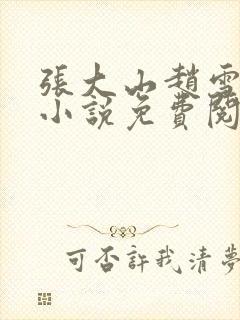 張大山趙雪
小說免費閱
可否許我清夢